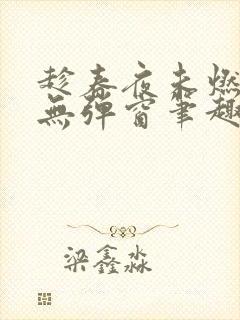 趁春夜未燃
無彈窗筆趣
梁鑫淼